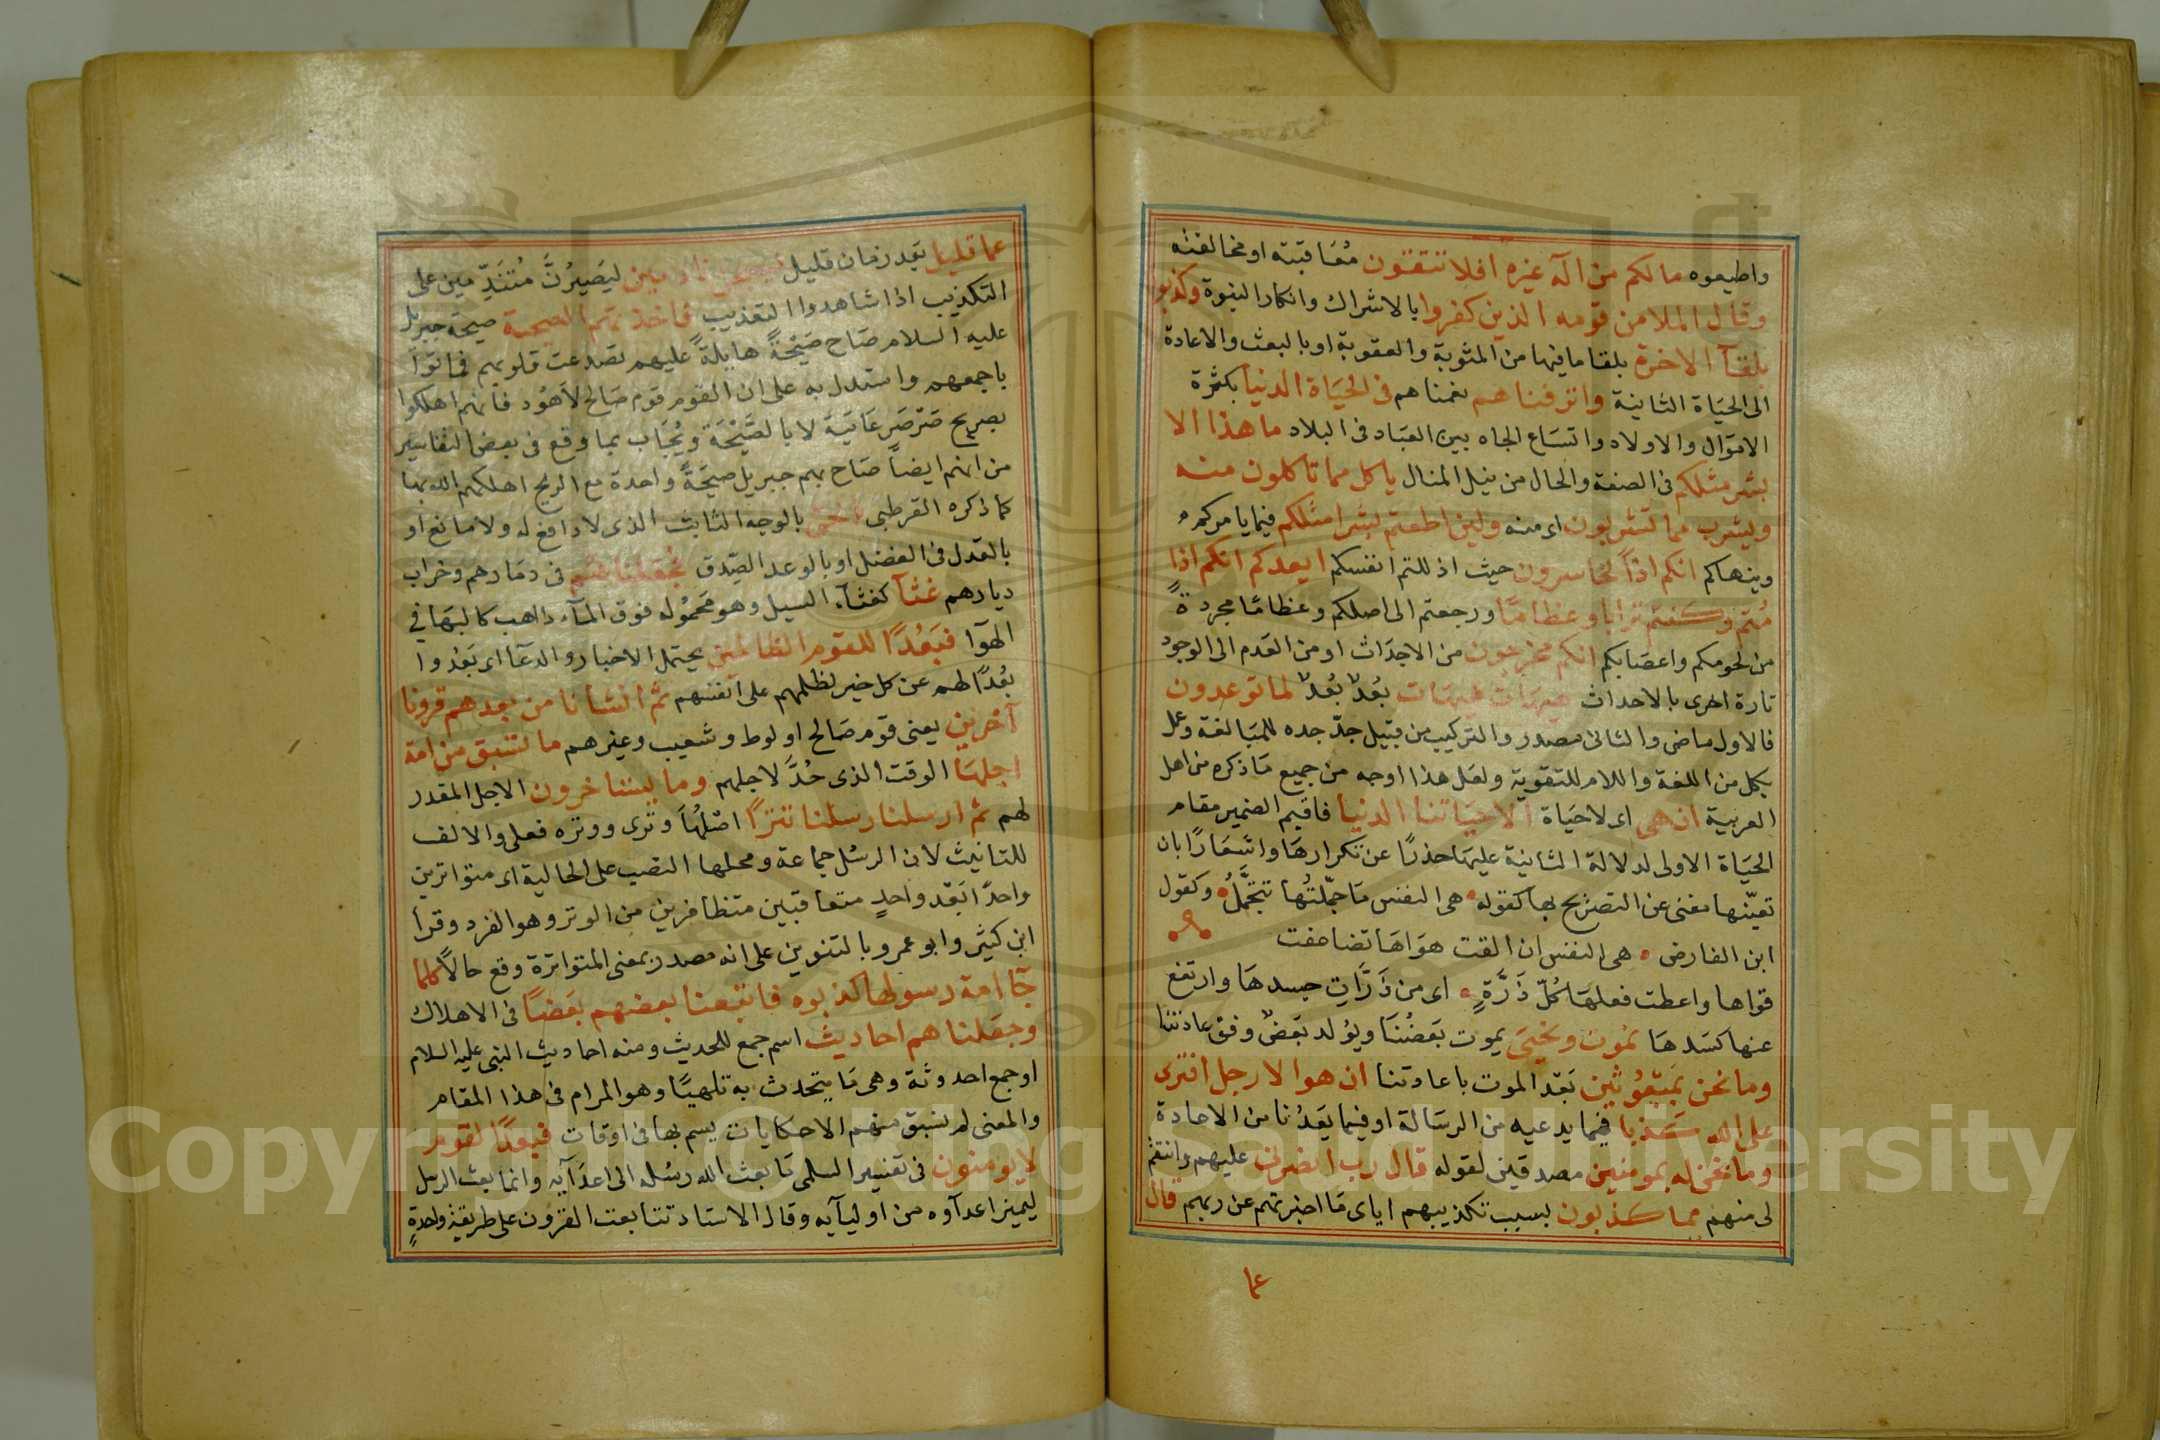 واطيعوه مالكم من اله غيره افلا تتقون مُعَاقبته او مخالفته
وقال الملا من قومه الذين كفروا بالاشراك وانكار النبوة وكذبوا
بلقآ الاخرة بلقا ما فيها من المثوبة والعقوبة او بالبعث والاعادة
الى الحيَاة الثانية واترفناهم نعمناهم فى الحيَاة الدنيا بكثرة
الاموَال والاولاد واتسَاع الجاه بين العبَاد فى البلاد ما هذا الا
بشر مثلكم فى الصفة والحال من نيل المنال ياكل مما تاكلون منه
ويشرب مما تشربون اى منه ولين اطعتم بشرا مثلكم فيما يامركم
وينهاكم انكم اذاً لخاسرون حيث اذللتم انفسكم ايعدكم انكم اذا
مُتم وكنتم ترابا وعظامًا ورجعتم الى اصلكم وعظامًا مجردةً
من لحومكم واعصَابكم انكم مخرجون من الاجدَاث او من العَدم الى الوجود
تارة اخرى بالاحداث هيهَات هيهَات بعُدَ بُعدٌ لما توعدون
فالاول ماضى والثانى مصدر والتركيب من قبيل جدّ جده للمبَالغة وعل
بكل من اللغة واللام للتقوية ولعل هذا اوجه من جميع مَا ذكره من اهل
العربية ان هى اى لا حيَاة الا حيَاتنا الدنيا فاقيم الضمير مقام
الحيَاة الاولى لدلالة الثانية عليهَا حذرًا عن تكرارهَا واشعَارًا بان
تعيّنها مغنى عن التصريح بها كقوله هى النفس مَا حمّلتُها تتحمَّلُ وكقول
ابن الفارض هى النفس ان القت هوَاهَا تضاعفت
قواها واعطت فعلهَا كُلّ ذَرَّةٍ اى من ذَرَّاتِ جسدهَا وارتفع
عنها كسَدهَا نمُوت ونحيَى يموت بَعضُنَا ويُولد بَعضٌ وفق عادتنا
وما نحن بمَبْعُوثين بَعْد الموت باعادتنا ان هو الا رجل افترى
على الله كذبا فيما يدعيه من الرسَالة او فيما يَعِدُنا من الاعادة
وما نحن له بمومنين مصدقين لقوله قال رب انصرنى عليهم وانتقم
لى منهم بما كذبون بسبب تكذيبهم اياى مَا اخبرتهم عن ربهم قال
عما
عما قليل بَعد زمان قليل ليصبحن نادمين ليَصيرُنَّ مُتَندِّمين على
التكذيب اذا شاهدوا التعذيب فاخذتهم الصيحة صيحة جبريل
عليه السلام صَاح صَيْحَةً هايلةً عليهم تصدعت قلوبهم فماتوا
باجمعهم واستدل به على ان القوم قوم صَالح لا هُود فانهم اهلكوا
بصريح صَرْصَر عَاتيَة لا بالصَّيْحَة ويُجَاب بما وقع فى بعض التفاسير
من انهم ايضاً صَاح بهم جبريل صيحَةً واحدة مع الريح اهلكهم الله بها
كما ذكره القرطبى بالحق بالوجه الثابت الذى لا دافع له ولا مانع او
بالعَدل فى الفضل او بالوعد الصّدق فجعلناهم فى دمَارهم وخراب
ديارهم غثآ كغثآء السيل وهو مَحمُوله فوق المآء ذاهب كالهبَا فى
الهوَآ فبُعدًا للقوم الظالمين يحتمل الاخبار والدعَآ اى بَعُدوا
بُعْدًا لهم عن كل خير لظلمهم على انفسهم ثم انشانا من بعدهم قرونا
آخرين يعنى قوم صَالح او لوط وشعيب وغيرهم ما تسبق من امة
اجلهَا الوقت الذى حُدَّ لاجلهم وما يستاخرون الاجل المقدر
لهم ثم ارسلنا رسلنا تترًا اصْلهُا وترى ووتره فعلى والالف
للتانيث لان الرسُل جماعة ومحلها النصب على الحالية اى متواترين
واحدًا بَعْد واحدٍ متعاقبين متظافرين من الوتر وهو الفرد وقرا
ابن كثير وابو عمرو بالتنوين على انه مصدر بمعنى المتواترة وقع حالاً كلما
جآ امة رسولها كذبوه فاتبعنا بعضهم بَعضًا فى الاهلاك
وجعَلناهم احاديث اسم جمع للحديث ومنه احاديث النبى عليه السلام
او جمع احدوثة وهى مَا يتحدث به تلهيًا وهو المرام فى هذا المقام
والمعنى لم نبق منهم الا حكايات يسمر بها فى اوقات فبعدًا لقوم
لا يومنون فى تفسير السلمى مَا بعث الله رسُله الى اعدَآيه وانما بعث الرسل
ليميز اعدآوه من اوليآيه وقال الاستاد تتابعت القرون على طريقة واحدةٍ
Copyright © King Saud University